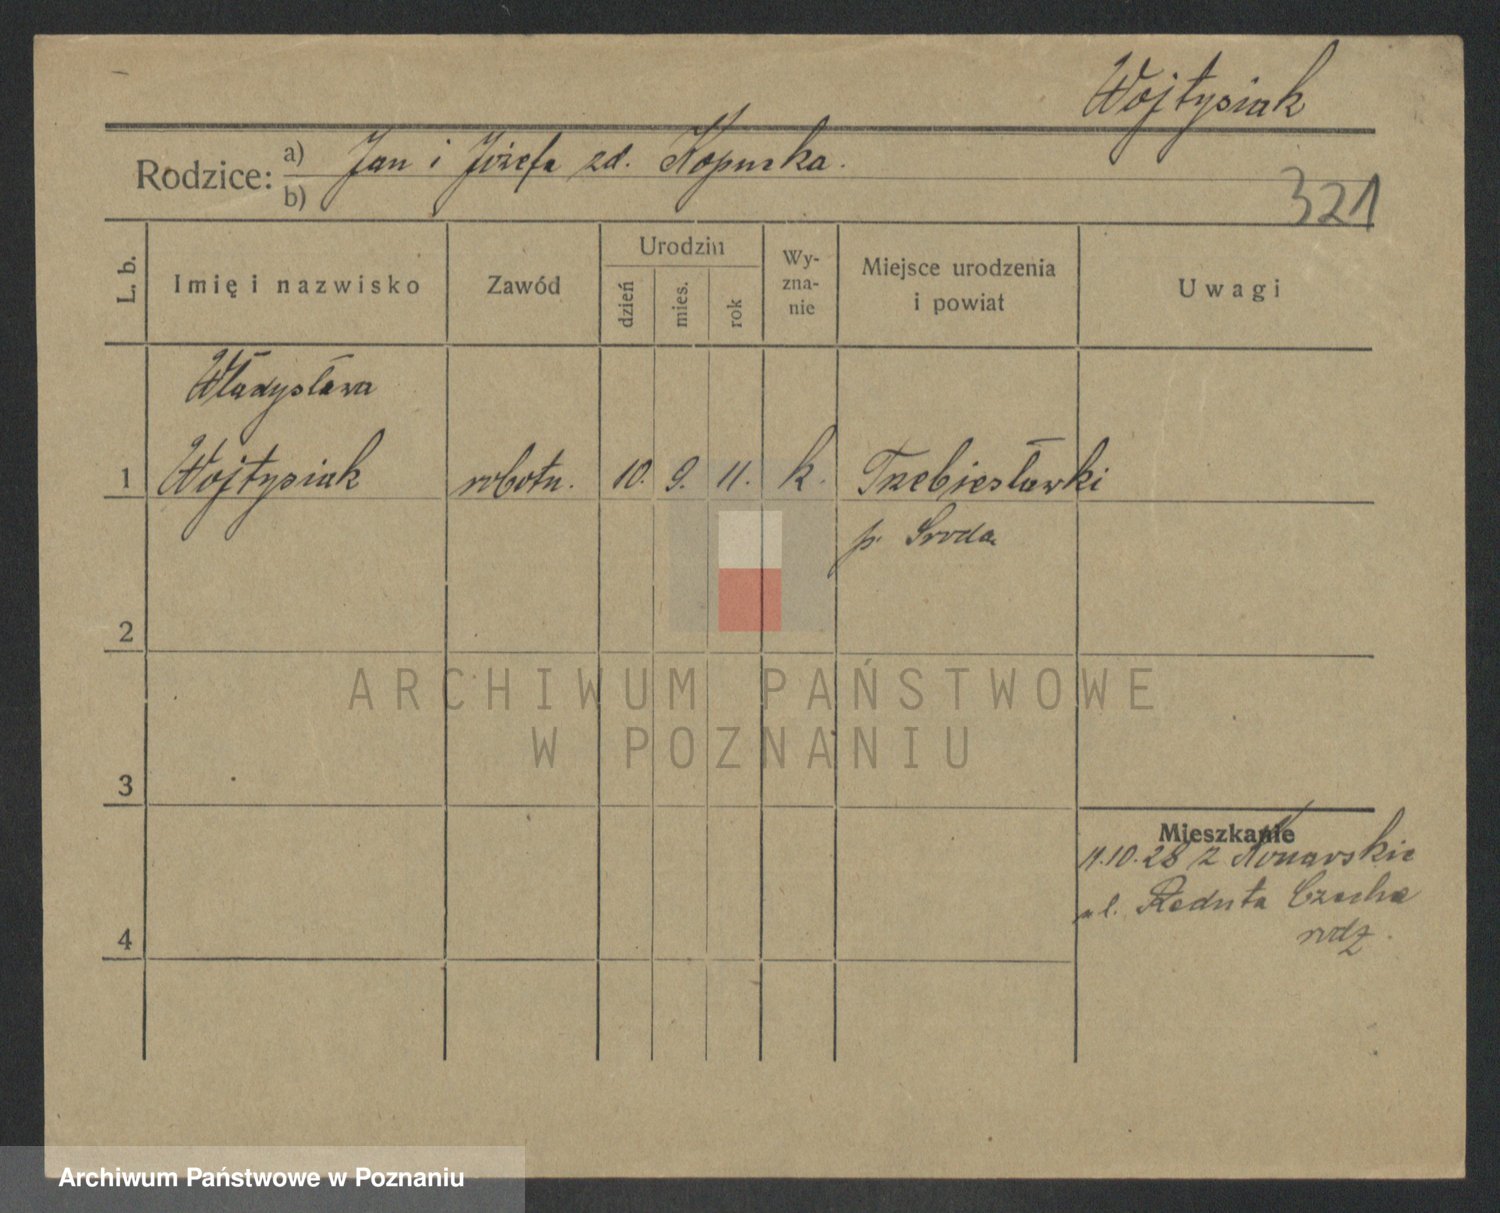 Wojtysiak
Rodzice: a) Jan i Józefa zd. Kopurka.
b)
321
L. b.
Imię i nazwisko
Zawód
Urodzin
dzień
mies.
rok
Wy-
zna-
nie
Miejsce urodzenia
i powiat
Uwagi
Władysława
1 Wojtysiak robotn. 10. 9. 11. k. Trzebiesławki
p. Sroda
2
ARCHIWUM PAŃSTWOWE
W POZNANIU
3
Mieszkanie
11.10.28 z Konarskie
ul. Reduta Czecha
rodz.
4
Archiwum Państwowe w Poznaniu